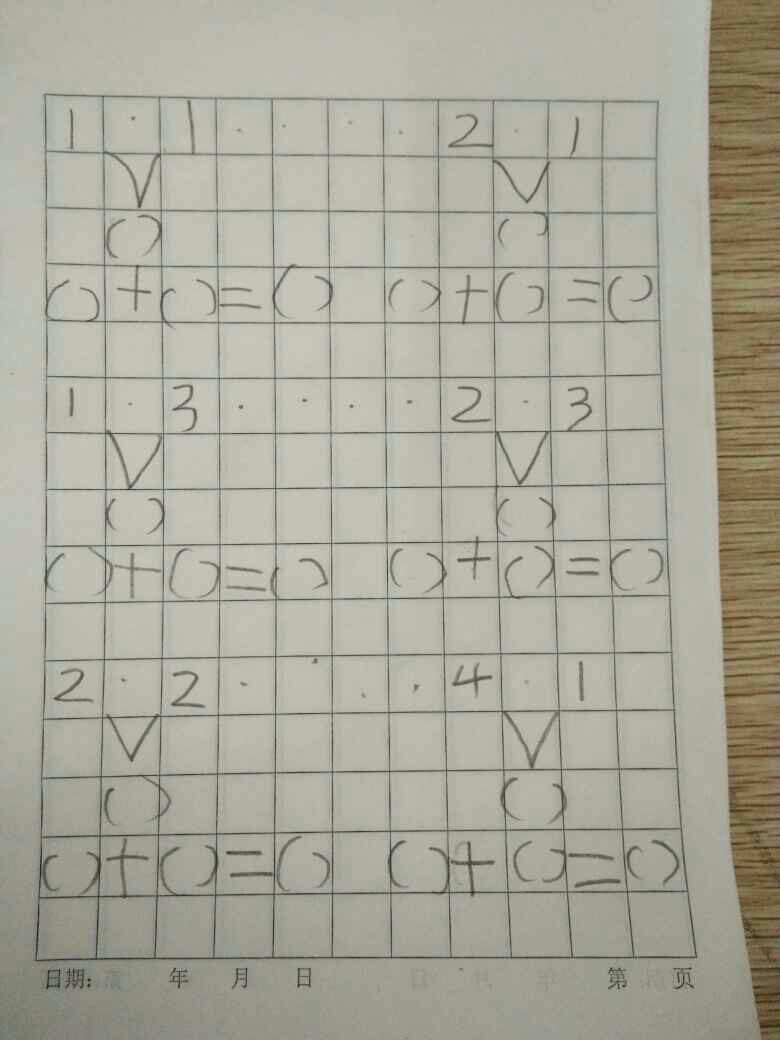 1 · 1 · · · · 2 · 1
V V
( ) ( )
( ) + ( ) = ( ) ( ) + ( ) = ( )
1 · 3 · · · · 2 · 3
V V
( ) ( )
( ) + ( ) = ( ) ( ) + ( ) = ( )
2 · 2 · · · · 4 · 1
V V
( ) ( )
( ) + ( ) = ( ) ( ) + ( ) = ( )
日期: 年 月 日 第 页